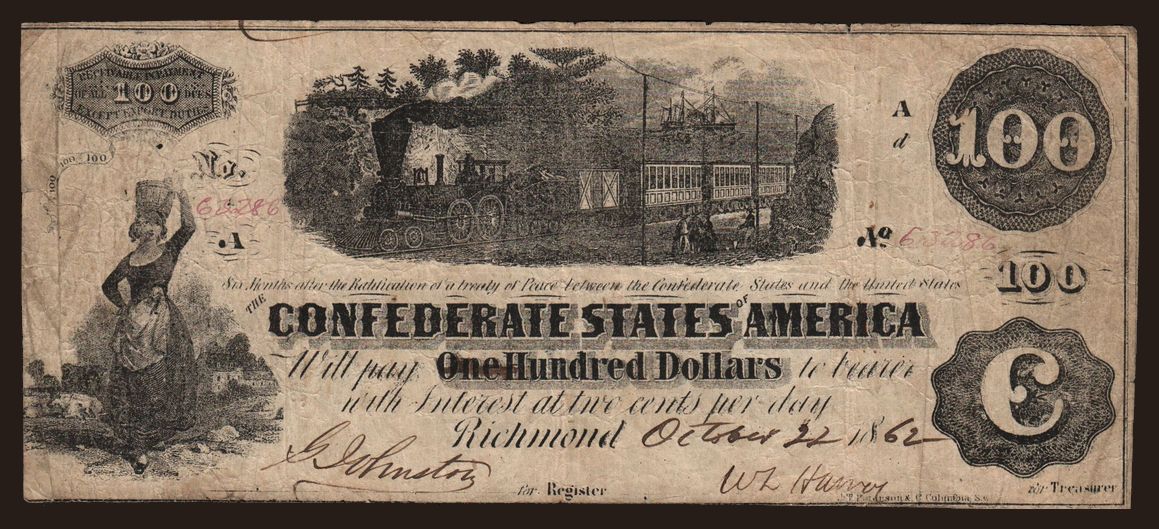 RECEIVABLE IN PAYMENT
OF ALL 100 DUES
EXCEPT EXPORT DUTIES
100 100 100
No.
63286
A
A
d
100
No 63286
100
Six Months after the Ratification of a treaty of Peace between the Confederate States and the United States
THE CONFEDERATE STATES OF AMERICA
Will pay One Hundred Dollars to bearer
with Interest at two cents per day
Richmond October 22 1862
C
G Johnston
for Register
W L Harvey
for Treasurer
J.T. Paterson & C. Columbia, S.C.